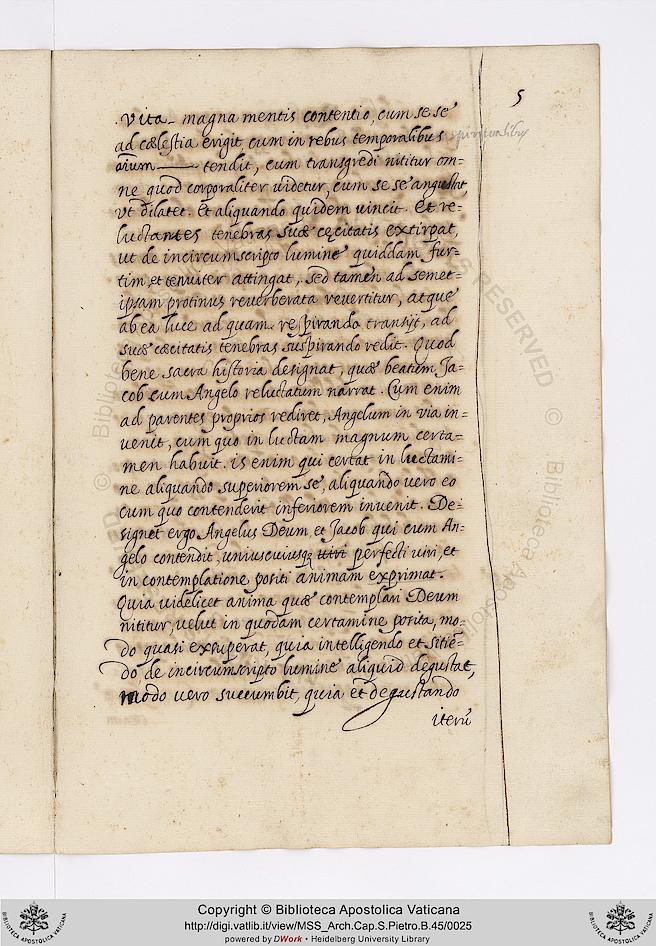 5
. vita - magna mentis contentio, cum se se
ad cælestia erigit, cum in rebus temporalibus spiritualibus
añium —— tendit, cum transgredi nititur om=
ne quod corporaliter videtur, cum se se angustat,
vt dilatet. Et aliquando quidem vincit. Et re=
luctantes tenebras suæ cęcitatis extirpat,
ut de incircumscripto lumine quiddam fur=
tim, et tenuiter attingat, sed tamen ad semet=
ipsam protinus reverberata revertitur, atque
ab ea luce ad quam respirando transijt, ad
suæ cæcitatis tenebras suspirando redit. Quod
bene sacra historia designat, quæ beatum Ja=
cob cum Angelo reluctatum narrat. Cum enim
ad parentes proprios rediret, Angelum in via in=
venit, cum quo in luctam magnum certa=
men habuit. is enim qui certat in luctami=
ne aliquando superiorem se, aliquando vero eo
cum quo contenderit inferiorem invenit. De=
signet ergo Angelus Deum, et Jacob qui cum An=
gelo contendit, uniuscuiusq; viri perfecti viri, et
in contemplatione positi animam exprimat.
Quia videlicet anima quæ contemplari Deum
nititur, velut in quodam certamine posita, mo=
do quasi exsuperat, quia intelligendo et sitiē=
do, de incircumscripto lumine aliquid degustat,
modo vero succumbit, quia et degustando
iterū
Copyright © Biblioteca Apostolica Vaticana
http://digi.vatlib.it/view/MSS_Arch.Cap.S.Pietro.B.45/0025
powered by DWork • Heidelberg University Library